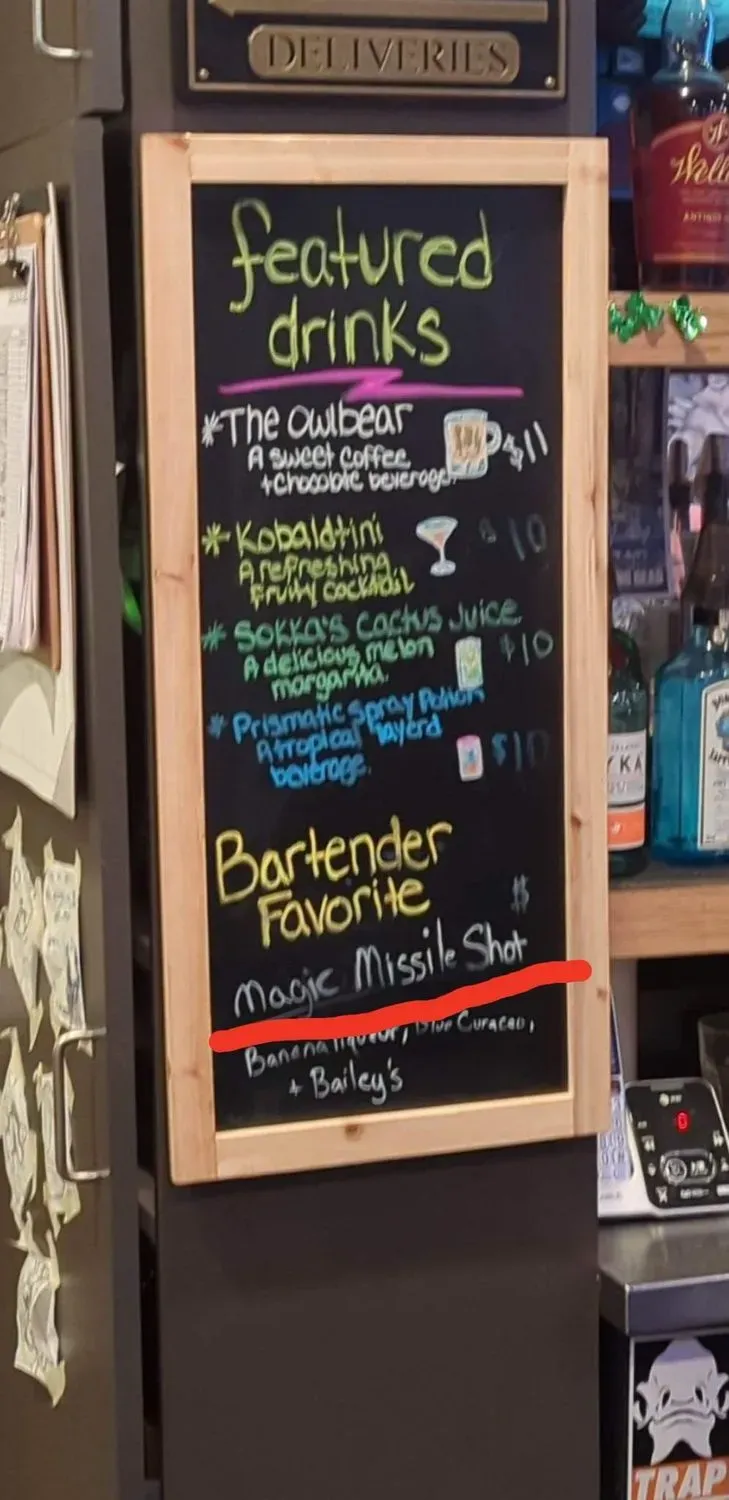 DELIVERIES
featured
drinks
*The Owlbear $11
A sweet coffee
+chocolate beverage.
*Kobaldtini $10
A refreshing
fruity cocktail
*Sokka's Cactus Juice $10
A delicious melon
margarita.
*Prismatic Spray Potion
A tropical layerd $10
beverage.
Bartender
Favorite $
Magic Missile Shot
Banana liqueur, Blue Curacao,
+ Bailey's
TRAP